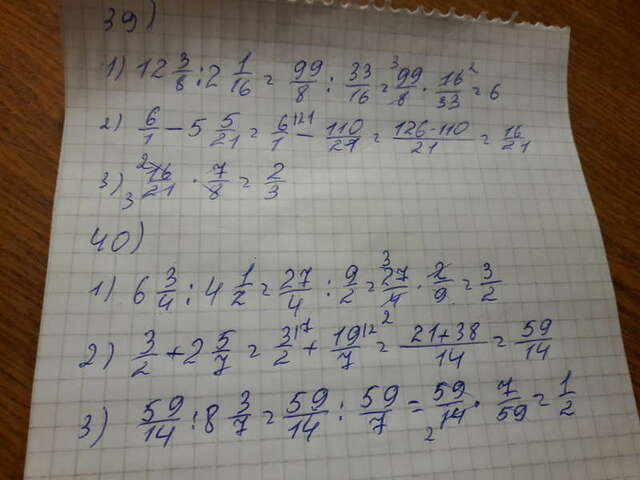 39)
1) 12 3/8 : 2 1/16 = 99/8 : 33/16 = ³99/8 · 16²/33 = 6
2) 6/1 - 5 5/21 = 6/1 |21 - 110/21 = 126-110/21 = 16/21
3) ²16/₃21 · 7/8 = 2/3
40)
1) 6 3/4 : 4 1/2 = 27/4 : 9/2 = ³27/4 · 2/9 = 3/2
2) 3/2 + 2 5/7 = 3/2 |7 + 19/7 |2 ² = 21+38/14 = 59/14
3) 59/14 : 8 3/7 = 59/14 : 59/7 = 59/₂14 · 7/59 = 1/2